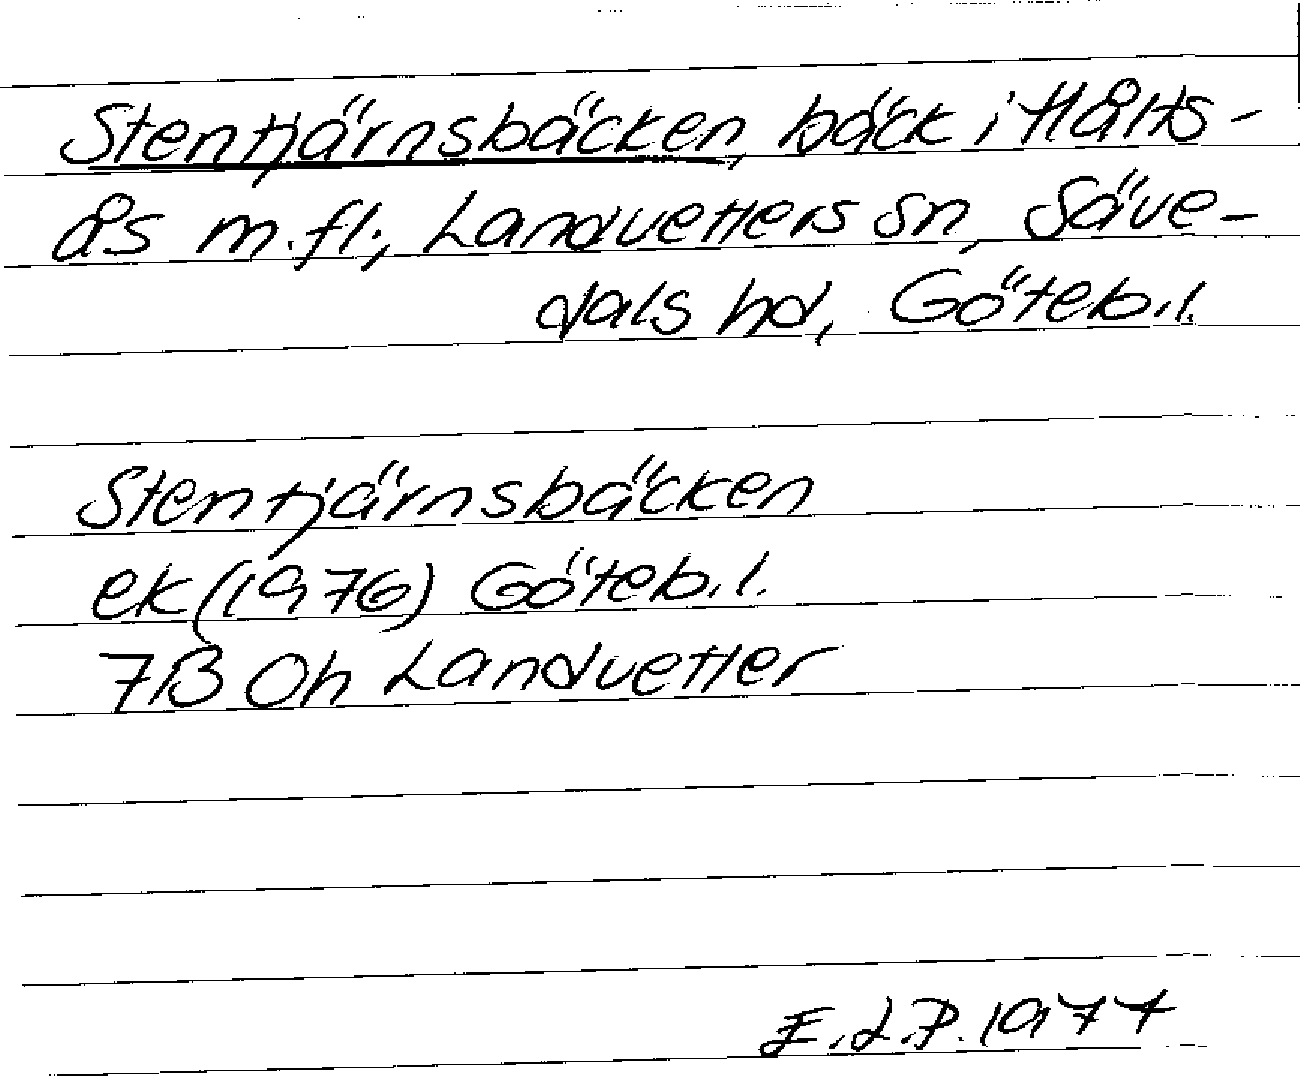 Stentjärnsbäcken, bäck i Hårts-
ås m.fl., Landvetters sn, Säve-
dals hd, Göteb.l.
Stentjärnsbäcken
ek (1976) Göteb.l.
7B 0h Landvetter
E.L.P. 1977